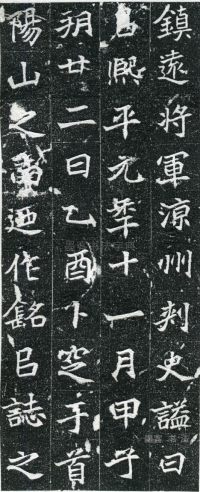 鎮遠將軍涼州刺史謚曰
熙平元年十一月甲子
朔廿二日乙酉下窆于首
陽山之南迺作銘㠯誌之